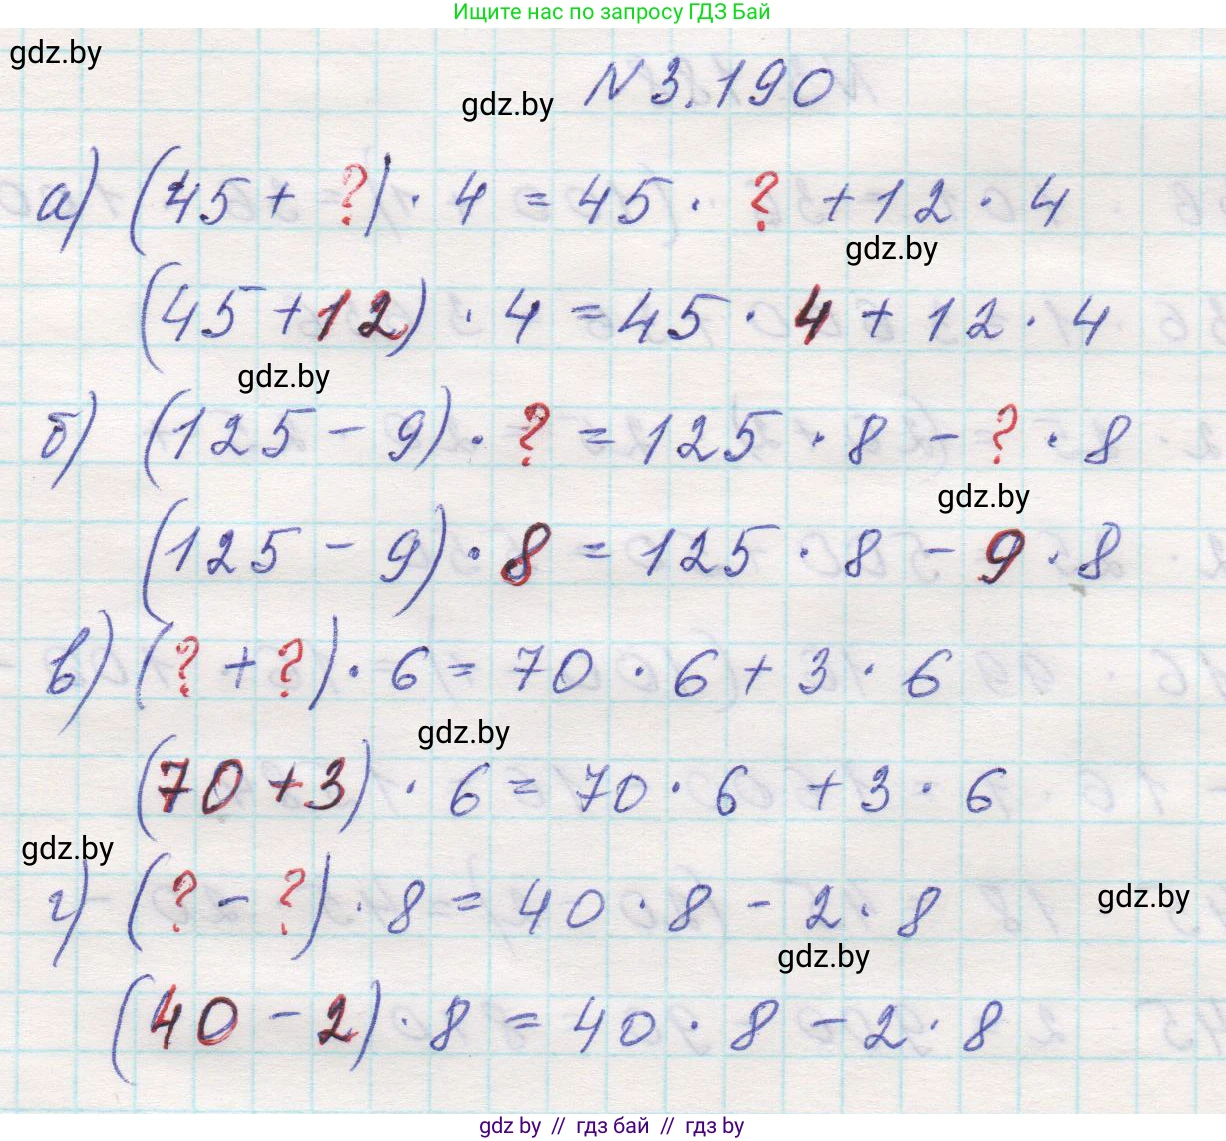 Ищите нас по запросу ГДЗ Бай
gdz.by
N 3.190
gdz.by
а) (45 + ?) · 4 = 45 · ? + 12 · 4
gdz.by
(45 + 12) · 4 = 45 · 4 + 12 · 4
gdz.by
б) (125 - 9) · ? = 125 · 8 - ? · 8
gdz.by
(125 - 9) · 8 = 125 · 8 - 9 · 8
в) (? + ?) · 6 = 70 · 6 + 3 · 6
gdz.by
(70 + 3) · 6 = 70 · 6 + 3 · 6
gdz.by
г) (? - ?) · 8 = 40 · 8 - 2 · 8
gdz.by
gdz.by
(40 - 2) · 8 = 40 · 8 - 2 · 8
gdz.by // гдз бай // гдз by